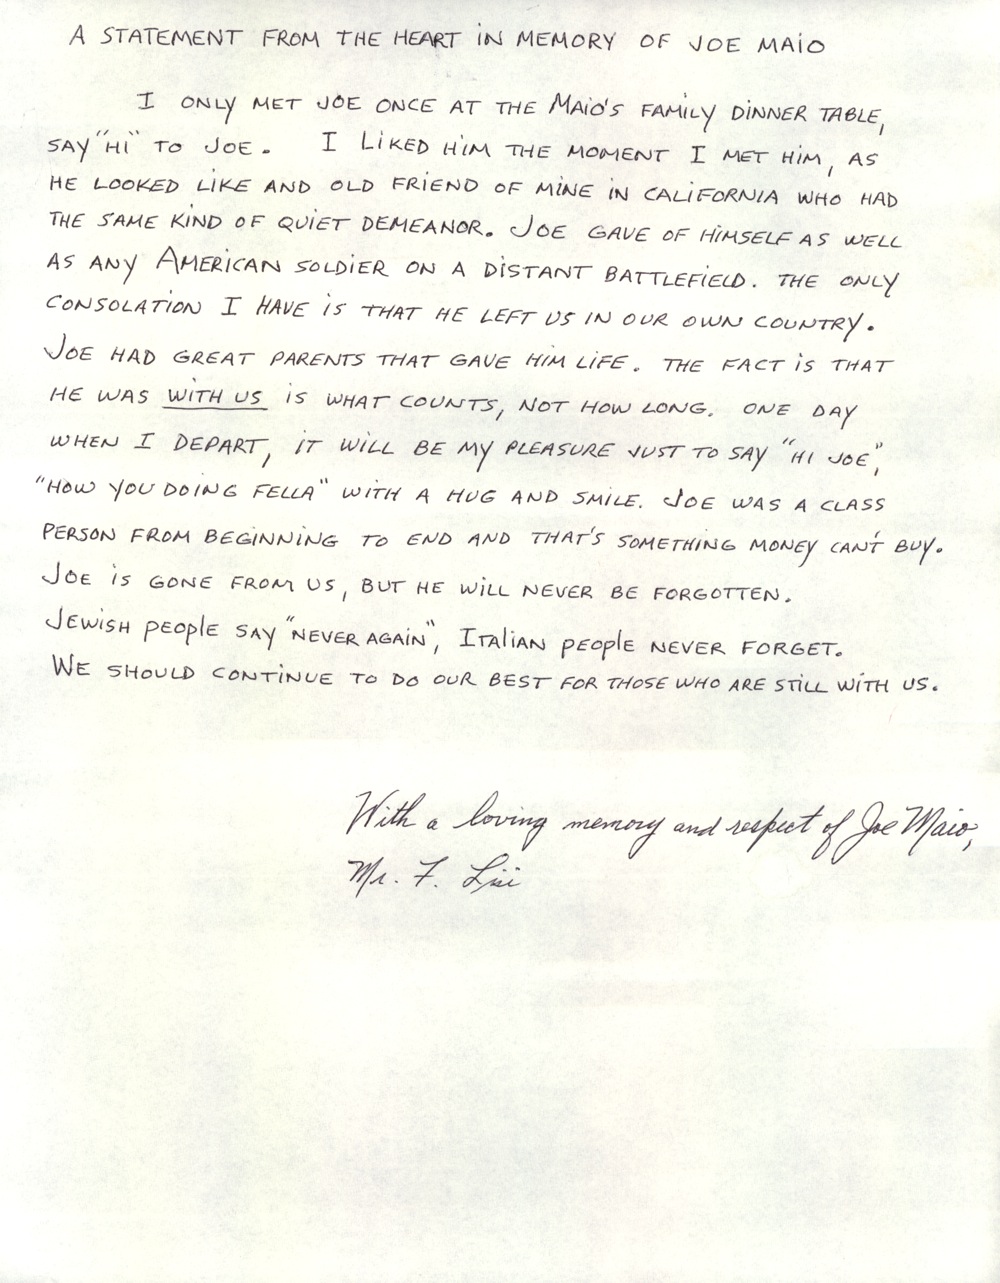 A STATEMENT FROM THE HEART IN MEMORY OF JOE MAIO
I ONLY MET JOE ONCE AT THE MAIO'S FAMILY DINNER TABLE,
SAY "HI" TO JOE. I LIKED HIM THE MOMENT I MET HIM, AS
HE LOOKED LIKE AND OLD FRIEND OF MINE IN CALIFORNIA WHO HAD
THE SAME KIND OF QUIET DEMEANOR. JOE GAVE OF HIMSELF AS WELL
AS ANY AMERICAN SOLDIER ON A DISTANT BATTLEFIELD. THE ONLY
CONSOLATION I HAVE IS THAT HE LEFT US IN OUR OWN COUNTRY.
JOE HAD GREAT PARENTS THAT GAVE HIM LIFE. THE FACT IS THAT
HE WAS WITH US IS WHAT COUNTS, NOT HOW LONG. ONE DAY
WHEN I DEPART, IT WILL BE MY PLEASURE JUST TO SAY "HI JOE",
"HOW YOU DOING FELLA" WITH A HUG AND SMILE. JOE WAS A CLASS
PERSON FROM BEGINNING TO END AND THAT'S SOMETHING MONEY CAN'T BUY.
JOE IS GONE FROM US, BUT HE WILL NEVER BE FORGOTTEN.
JEWISH PEOPLE SAY "NEVER AGAIN", ITALIAN PEOPLE NEVER FORGET.
WE SHOULD CONTINUE TO DO OUR BEST FOR THOSE WHO ARE STILL WITH US.
With a loving memory and respect of Joe Maio,
Mr. F.